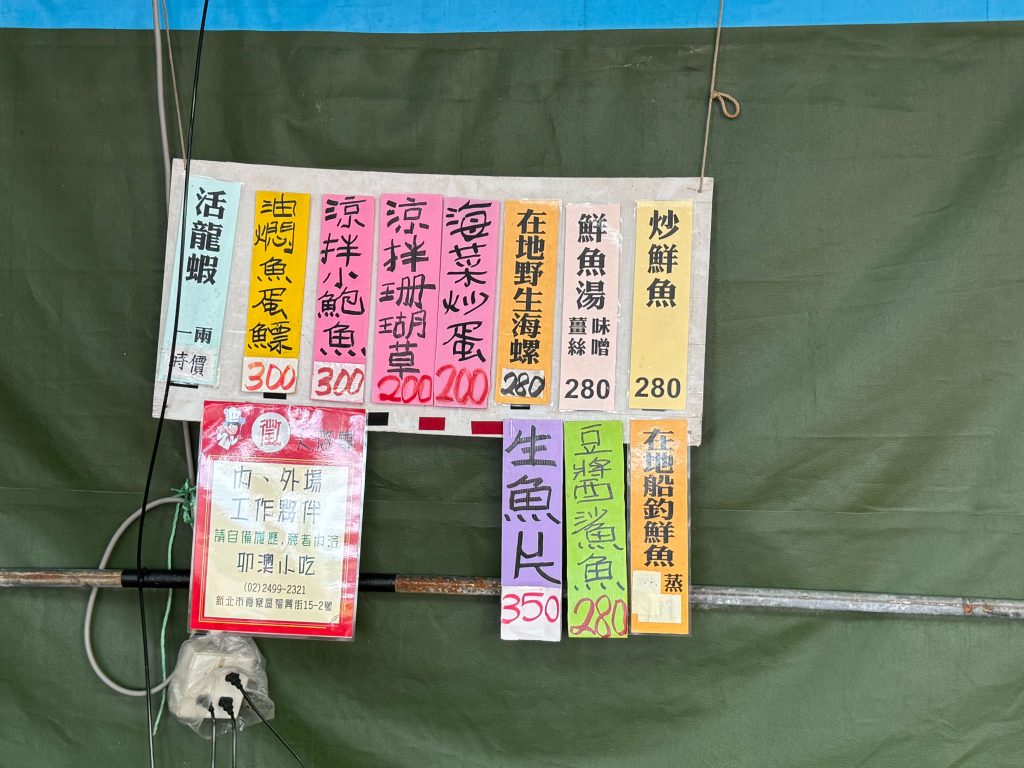 活龍蝦
一兩
時價
油燜魚蛋鰾
300
涼拌小鮑魚
300
涼拌珊瑚草
200
海菜炒蛋
200
在地野生海螺
280
鮮魚湯
味噌
薑絲
280
炒鮮魚
280
生魚片
350
豆醬鯊魚
280
在地船釣鮮魚
蒸
徵
內、外場
工作夥伴
請自備履歷,意者內洽
卯澳小吃
(02)2499-2321
新北市貢寮區福興街15-2號